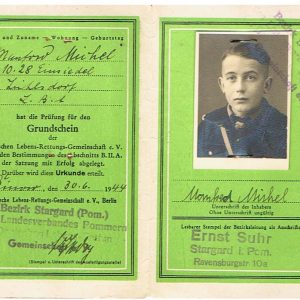 und Zuname – Wohnung – Geburtstag
Manfred Michel
10.28 Einsiedel
L.B.A
hat die Prüfung für den
Grundschein
der
chen Lebens-Rettungs-Gemeinschaft e. V.
den Bestimmungen des Abschnitts B.II.A.
der Satzung mit Erfolg abgelegt.
Darüber wird diese Urkunde erteilt.
den 30.6. 1944
sche Lebens-Rettungs-Gemeinschaft e.V., Berlin
Bezirk Stargard (Pom.)
Landesverbandes Pommern
Gemeinschaft
(Stempel u. Unterschrift
Manfred Michel
Unterschrift des Inhabers
Ohne Unterschrift ungültig
Lesbarer Stempel der Bezirksleitung als Anschrift
Ernst Suhr
Stargard i. Pom.
Ravensburgstr. 10a